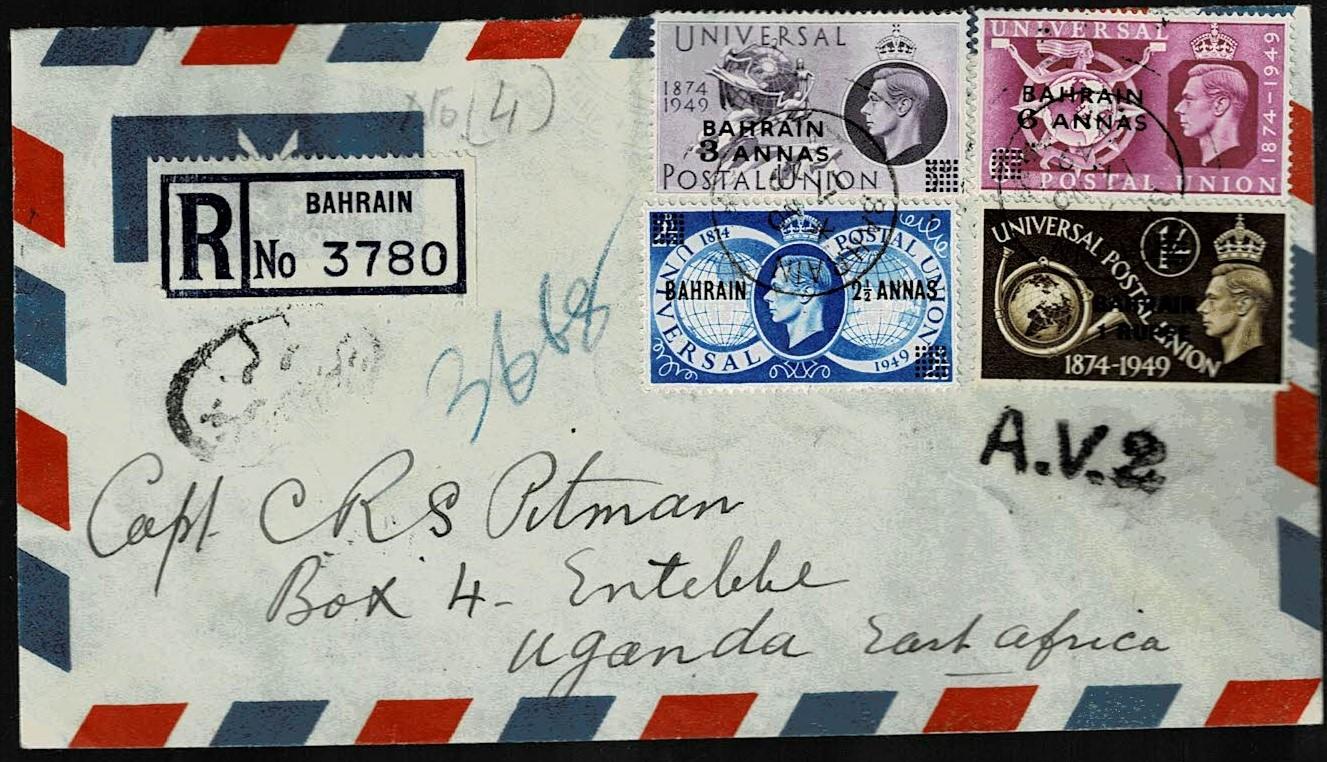 (4)
UNIVERSAL
1874
1949
BAHRAIN
3 ANNAS
POSTAL UNION
UNIVERSAL
BAHRAIN
6 ANNAS
1874-1949
POSTAL UNION
R
BAHRAIN
No 3780
UNIVERSAL POSTAL UNION
1874
BAHRAIN 2½ ANNAS
1949
UNIVERSAL POSTAL UNION
BAHRAIN
RUPEE
1874-1949
3668
A.V.2
Capt CRS Pitman
Box 4- Entebbe
Uganda East Africa